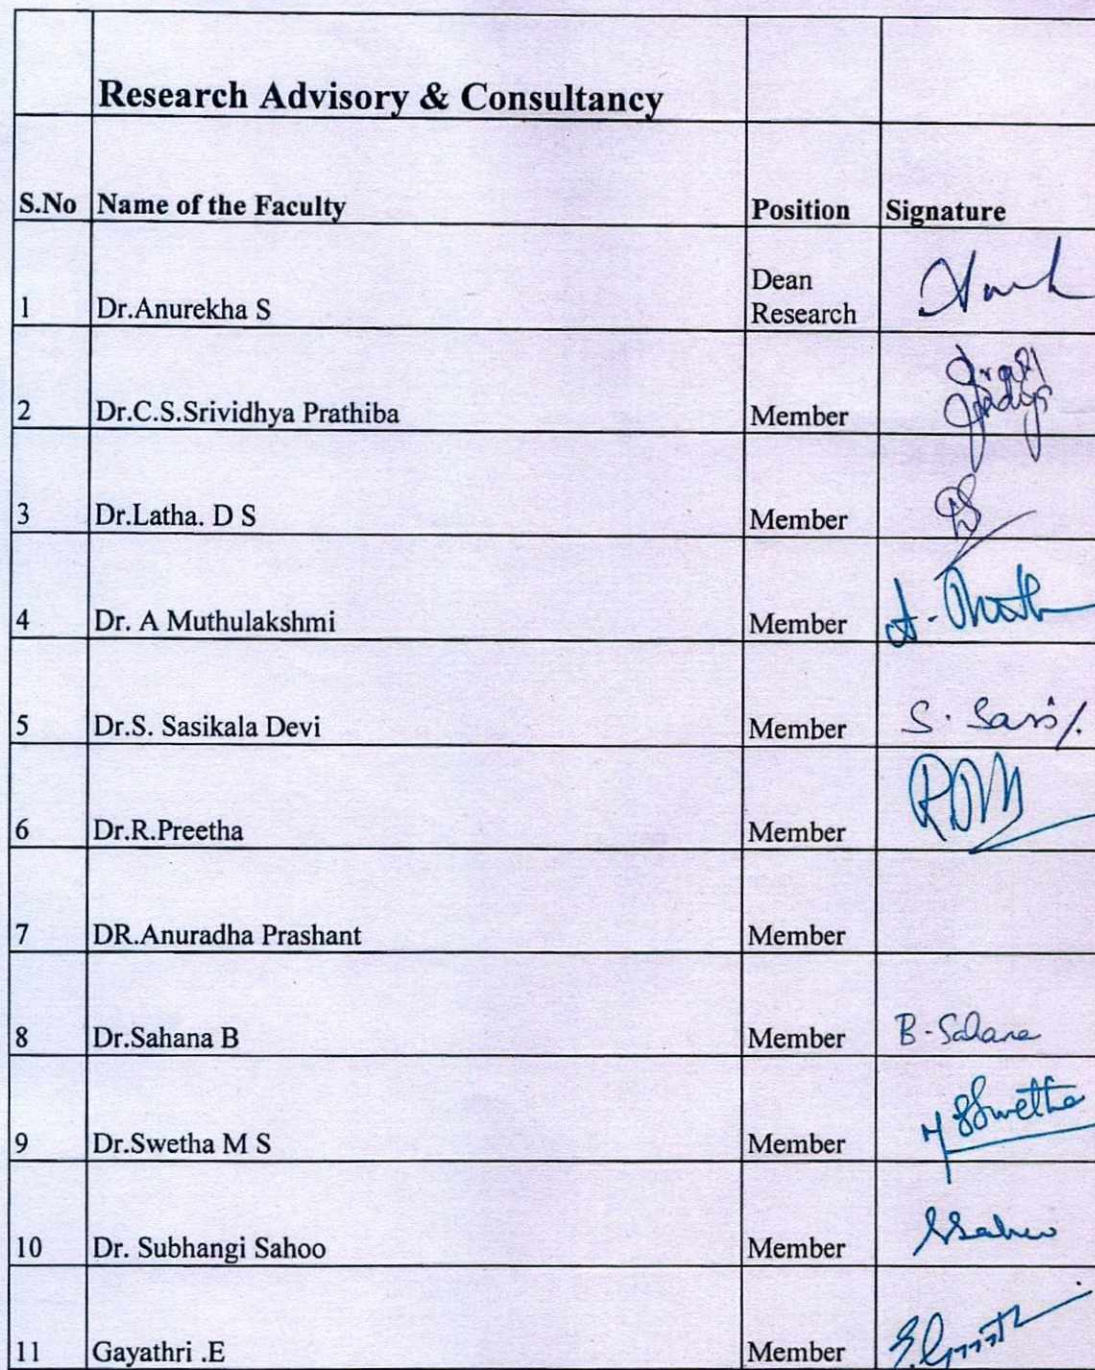 Research Advisory & Consultancy
S.No Name of the Faculty Position Signature
1 Dr.Anurekha S Dean Research
2 Dr.C.S.Srividhya Prathiba Member
3 Dr.Latha. D S Member
4 Dr. A Muthulakshmi Member
5 Dr.S. Sasikala Devi Member S. Sasi
6 Dr.R.Preetha Member
7 DR.Anuradha Prashant Member
8 Dr.Sahana B Member B-Sahana
9 Dr.Swetha M S Member
10 Dr. Subhangi Sahoo Member
11 Gayathri .E Member